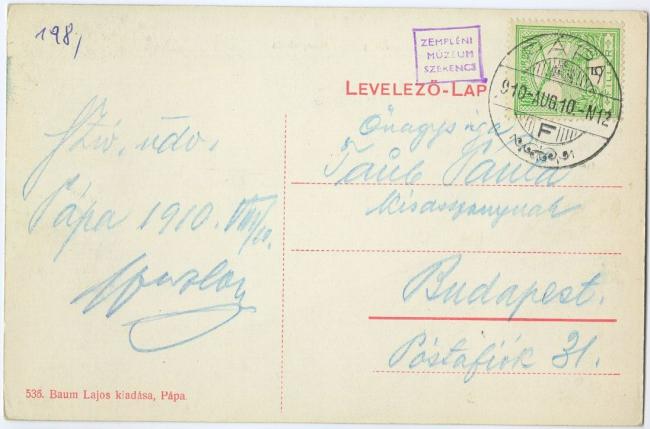 198,
ZEMPLÉNI
MÚZEUM
SZERENCS
LEVELEZŐ-LAP
PÁPA
910-AUG.10-N12
F
Szív. üdv.
Pápa 1910. VIII/10.
Őnagysága
Taub Paula
kisasszonynak
Budapest.
Póstafiók 31.
536. Baum Lajos kiadása, Pápa.